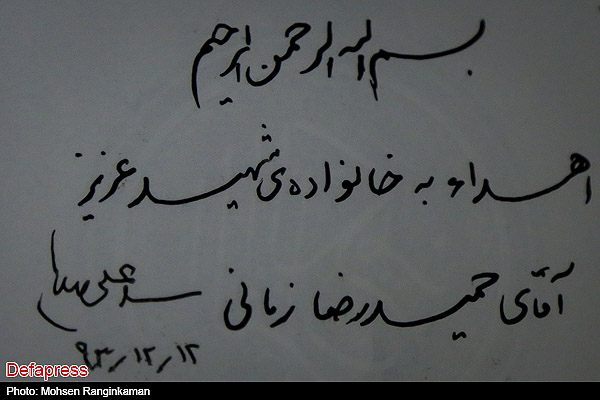 بسم الله الرحمن الرحیم
اهداء به خانواده‌ی شهید عزیز
آقای حمیدرضا زمانی سیدعلی
۹۳/۱۲/۱۲
Defapress
Photo: Mohsen Ranginkaman